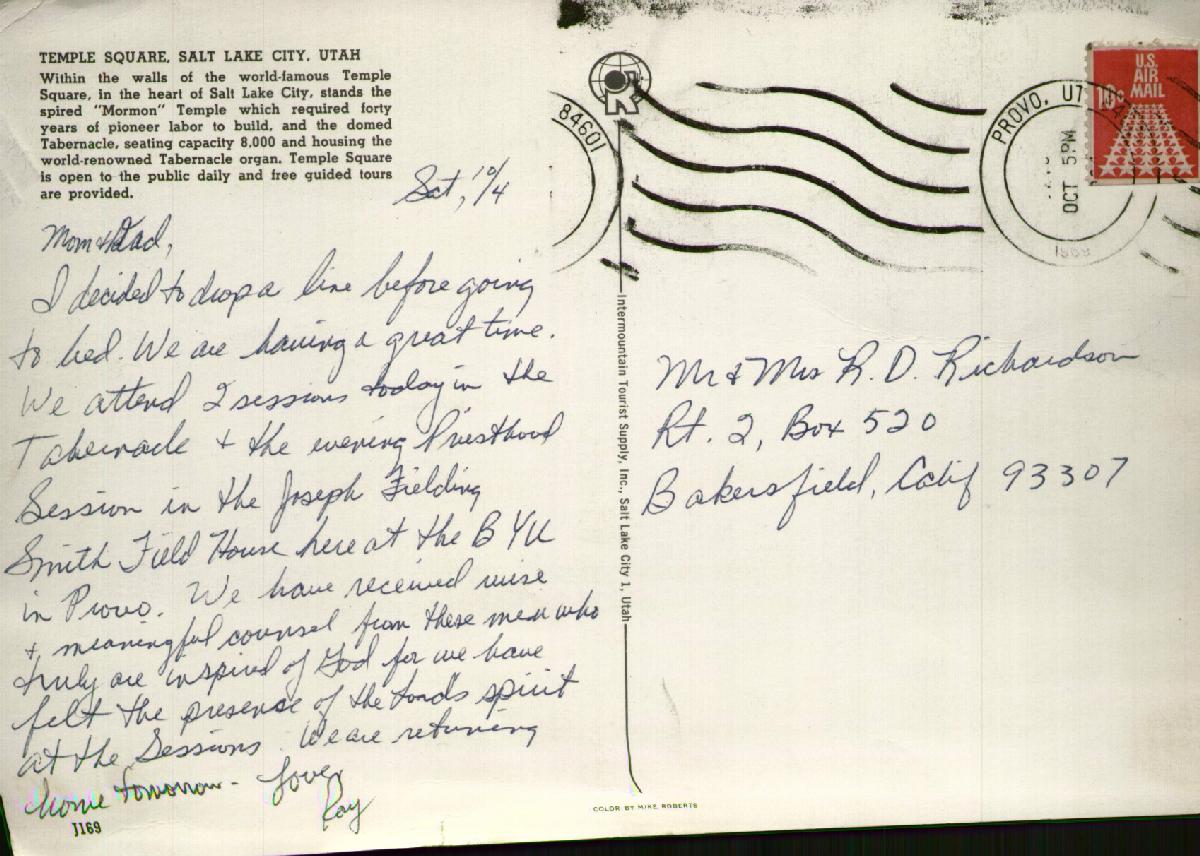 TEMPLE SQUARE, SALT LAKE CITY, UTAH
Within the walls of the world-famous Temple
Square, in the heart of Salt Lake City, stands the
spired "Mormon" Temple which required forty
years of pioneer labor to build, and the domed
Tabernacle, seating capacity 8,000 and housing the
world-renowned Tabernacle organ. Temple Square
is open to the public daily and free guided tours
are provided.
Sat, 10/4
Mom & Dad,
I decided to drop a line before going
to bed. We are having a great time.
We attend 2 sessions today in the
Tabernacle + the evening Priesthood
Session in the Joseph Fielding
Smith Field House here at the BYU
in Provo. We have received wise
+ meaningful counsel from these men who
truly are inspired of God for we have
felt the presence of the Lords spirit
at the Sessions. We are returning
home tomorrow - Love,
Ray
J169
Intermountain Tourist Supply, Inc., Salt Lake City 1, Utah
COLOR BY MIKE ROBERTS
K
84601
PROVO, UT
OCT 5PM
1969
U.S.
AIR
MAIL
10c
Mr & Mrs R. D. Richardson
Rt. 2, Box 520
Bakersfield, Calif 93307